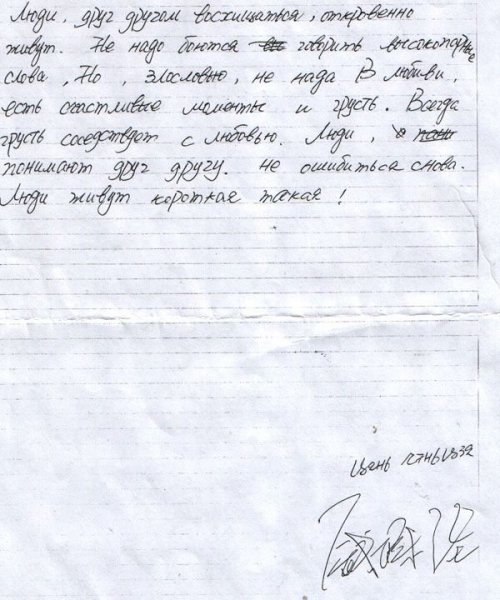 Люди, друг другом восхищаться, откровенно
живут. Не надо боются говорить высокопарные
слова, Но, злословью, не нада В любви,
есть счастливые моменты и грусть. Всегда
грусть соседствдет с любовью. Люди,
понимают друг другу. не ошибиться снова.
Люди живут короткая такая!
Цень